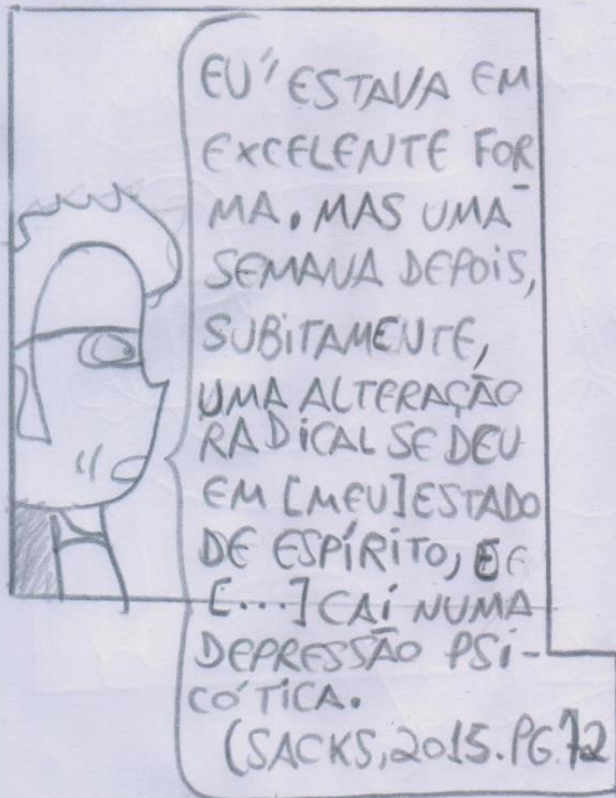 EU ESTAVA EM
EXCELENTE FOR
MA. MAS UMA
SEMANA DEPOIS,
SUBITAMENTE,
UMA ALTERAÇÃO
RADICAL SE DEU
EM [MEU] ESTADO
DE ESPÍRITO, E
[...] CAÍ NUMA
DEPRESSÃO PSI-
CÓTICA.
(SACKS, 2015. PG. 72